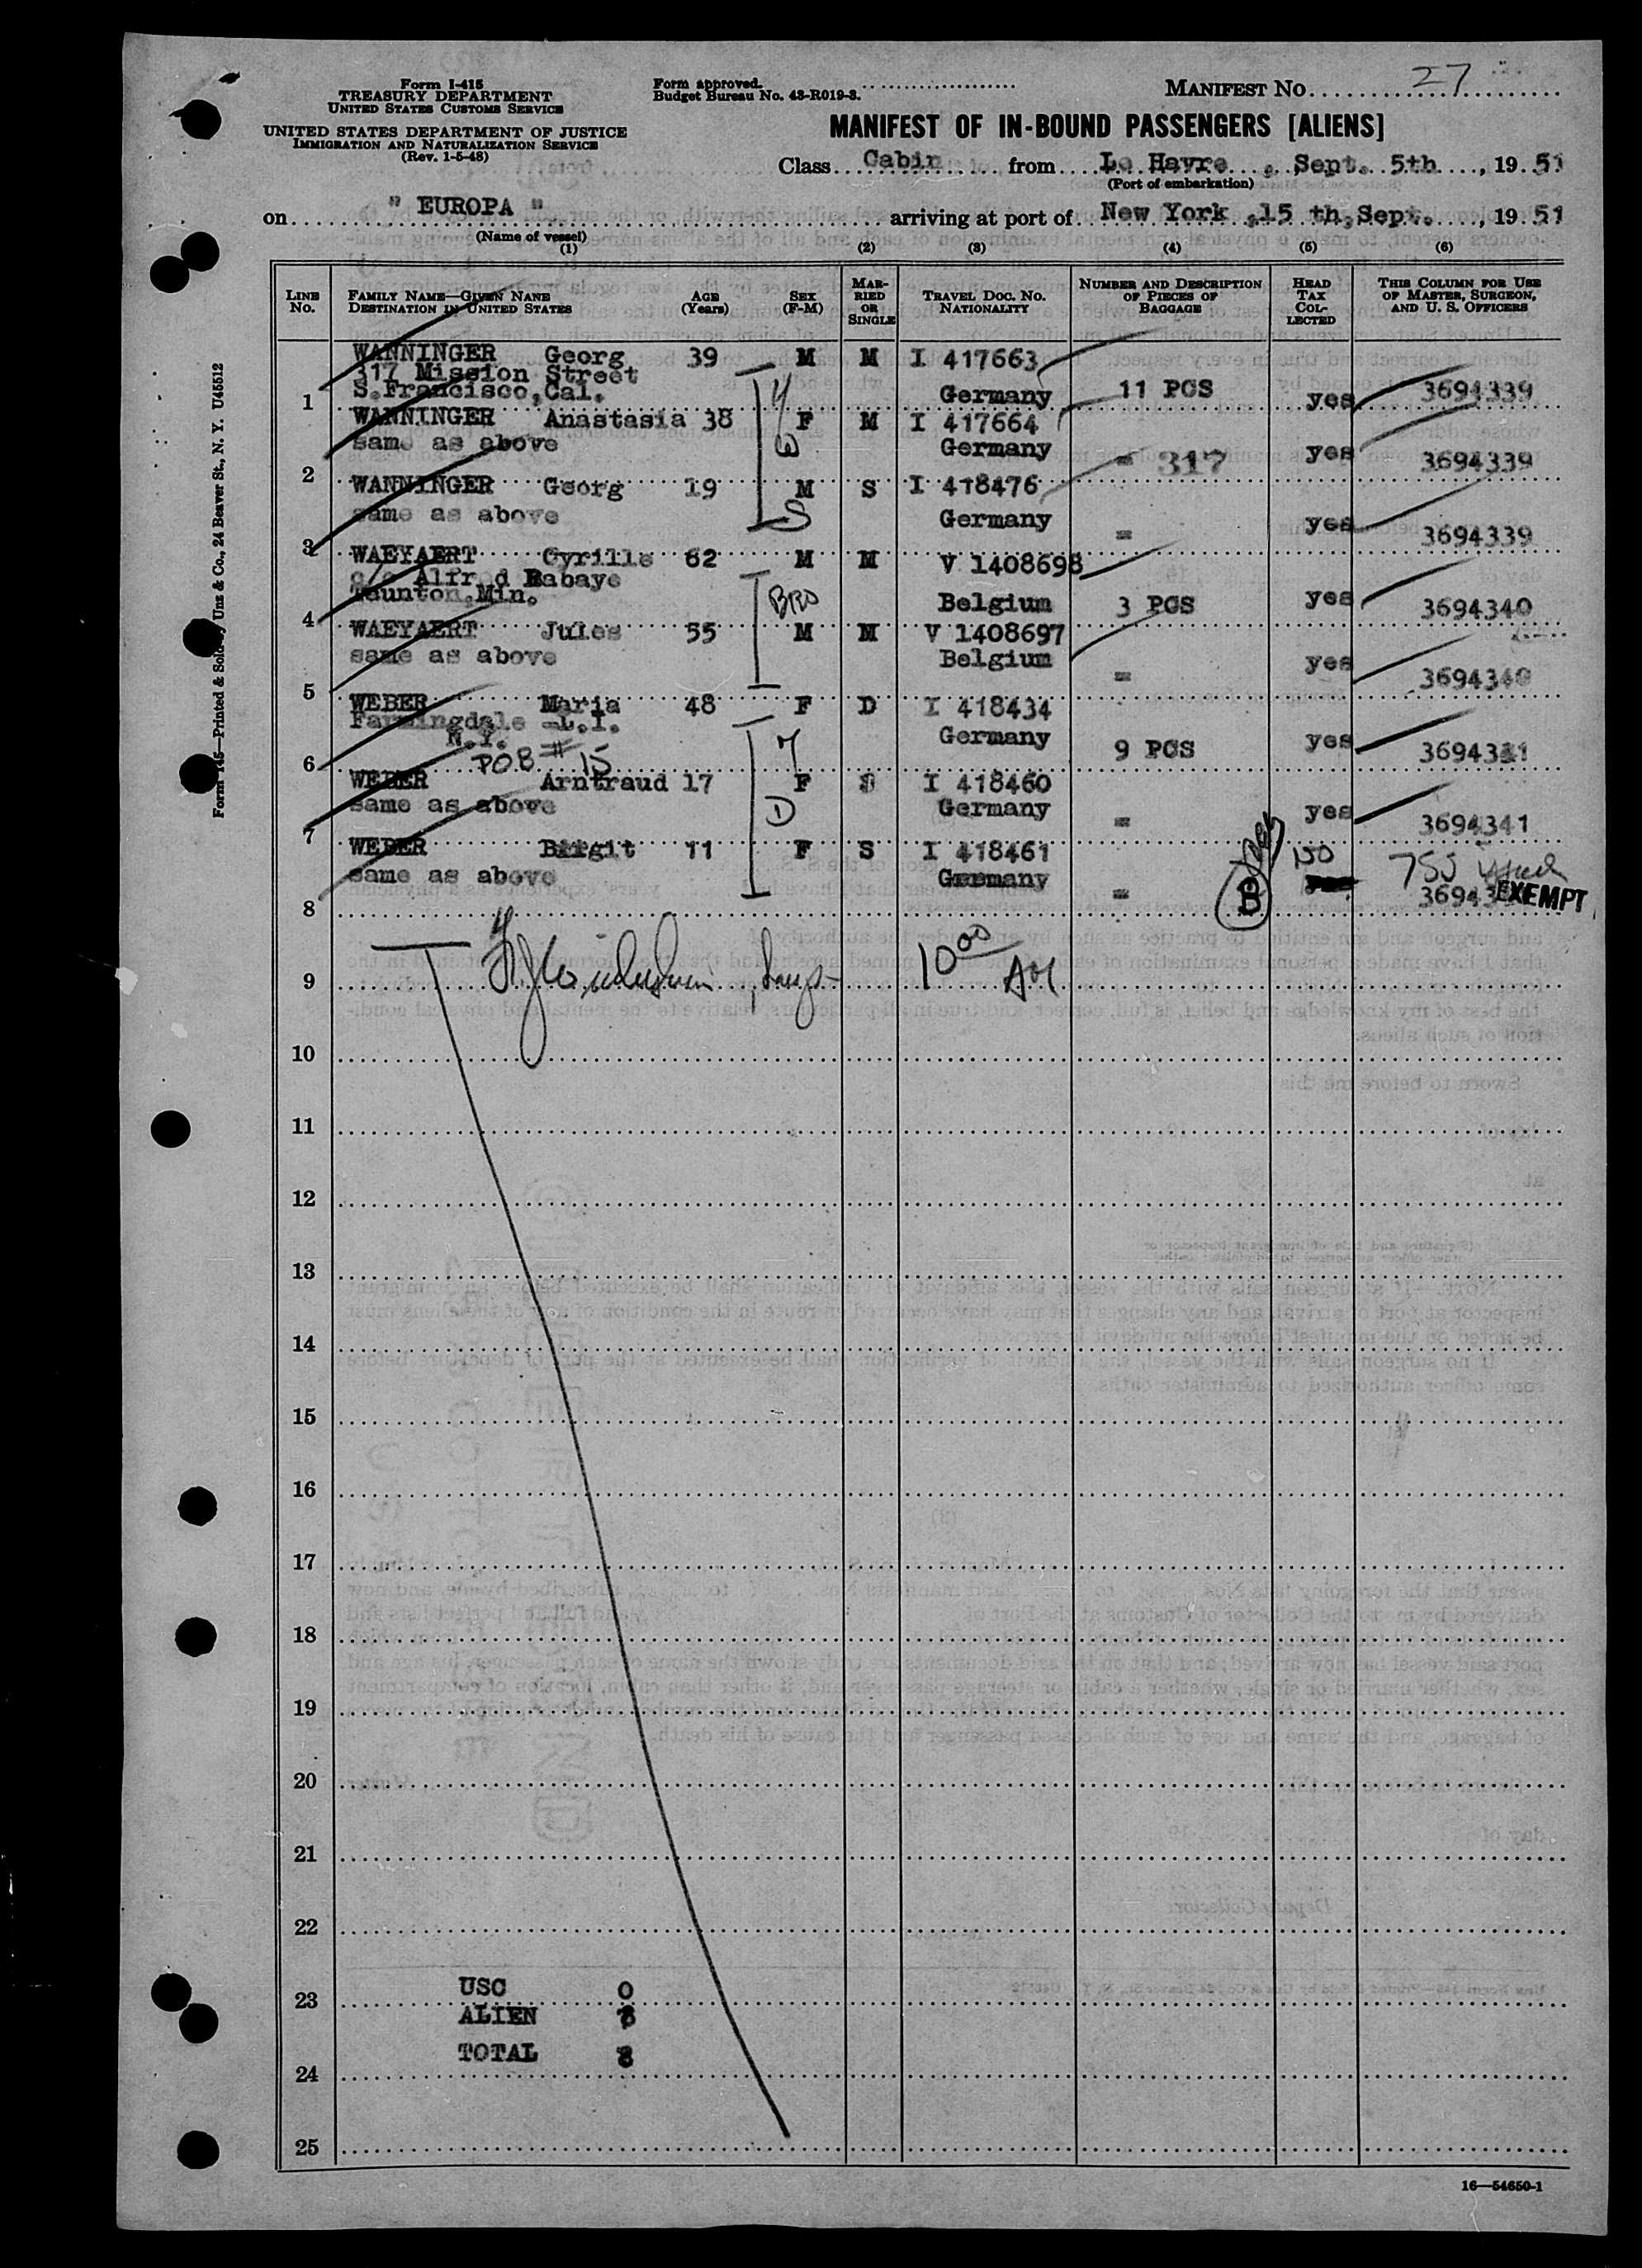 Form I-415
TREASURY DEPARTMENT
UNITED STATES CUSTOMS SERVICE
UNITED STATES DEPARTMENT OF JUSTICE
IMMIGRATION AND NATURALIZATION SERVICE
(Rev. 1-5-48)
Form approved.
Budget Bureau No. 43-R019-3.
MANIFEST NO. 27
MANIFEST OF IN-BOUND PASSENGERS [ALIENS]
Class Cabin from Le Havre, Sept. 5th, 19 51
(Port of embarkation)
on " EUROPA " arriving at port of New York, 15 th, Sept., 19 51
(Name of vessel)
(1) (2) (3) (4) (5) (6)
LINE NO. FAMILY NAME—GIVEN NAME DESTINATION IN UNITED STATES AGE (Years) SEX (F-M) MARRIED OR SINGLE TRAVEL DOC. NO. NATIONALITY NUMBER AND DESCRIPTION OF PIECES OF BAGGAGE HEAD TAX COLLECTED THIS COLUMN FOR USE OF MASTER, SURGEON, AND U. S. OFFICERS
WANNINGER Georg 39 M M I 417663
317 Mission Street
S.Francisco,Cal. Germany 11 PCS yes 3694339
1
H
WANNINGER Anastasia 38 F M I 417664
same as above W Germany = 317 yes 3694339
2
WANNINGER Georg 19 M S I 418476
same as above S Germany = yes 3694339
3
WAEYAERT Cyrille 62 M M V 1408698
c/o Alfred Babaye
Taunton,Min. BRO Belgium 3 PCS yes 3694340
4
WAEYAERT Jules 55 M M V 1408697
same as above Belgium = yes 3694340
5
WEBER Maria 48 F D I 418434
Farmingdale -L.I. Germany 9 PCS yes 3694341
N.Y.
POB # 15
6
WEBER Arntraud 17 F S I 418460
same as above D Germany = yes 3694341
7
WEBER Birgit 11 F S I 418461
same as above Germany = B NO EXEMPT
8
9 10 00
10
11
12
13
14
15
16
17
18
19
20
21
22
USC 0
23
ALIEN 8
TOTAL 8
24
25
16—54650-1
Form 145—Printed & Sold by Unz & Co., 24 Beaver St., N. Y. U45512